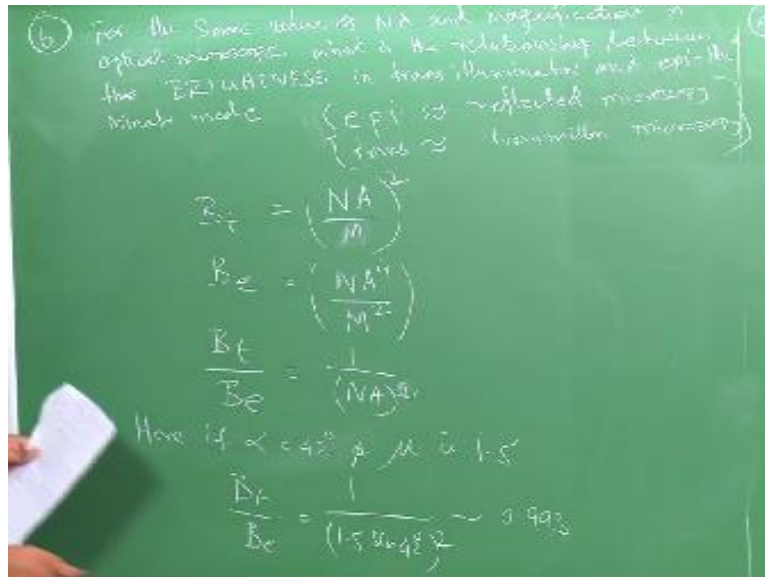 (b) For the Same value of NA and magnification in
optical microscope what is the relationship between
the BRIGHTNESS in trans illumination and epi-illu
minate mode (epi ≈ reflected microscopy
(trans ≈ transmitted microscopy)
B_t = (NA/M)²
B_e = (NA⁴/M²)
B_t/B_e = 1/(NA)²
Here if α = 42° & μ is 1.5
B_t/B_e = 1/(1.5 Sin 42°)² ~ 0.993